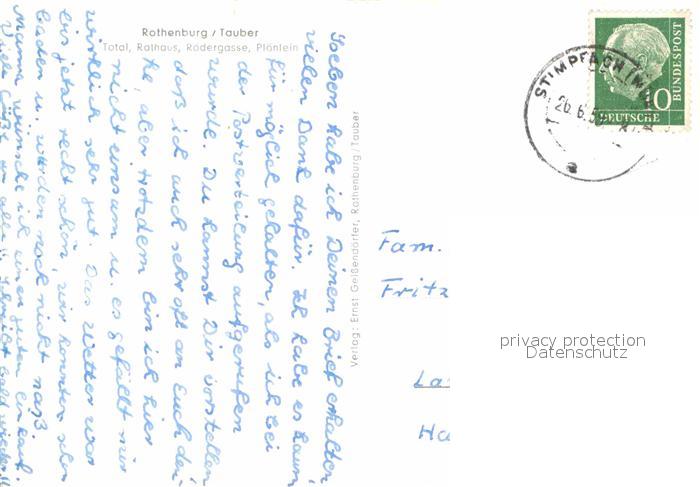 Rothenburg / Tauber
Total, Rathaus, Rödergasse, Plönlein
Soeben habe ich Deinen Brief erhalten,
vielen Dank dafür. Ich habe es kaum
für möglich gehalten, als ich bei
der Postverteilung aufgerufen
wurde. Du kannst Dir vorstellen
daß ich auch sehr oft an Euch den-
ke, aber trotzdem bin ich hier
nicht einsam u. es gefällt mir
wirklich sehr gut. Das Wetter war
bis jetzt recht schön, wir konnten schon
baden u. wurden noch nicht naß.
Mama wünsche ich einen guten Einkauf.
Viele Grüße an alle
Verlag: Ernst Geißendörfer, Rothenburg/Tauber
DEUTSCHE
BUNDESPOST
10
STIMPFACH
26.6.5
a
Fam.
Fritz
La
Ha
privacy protection
Datenschutz